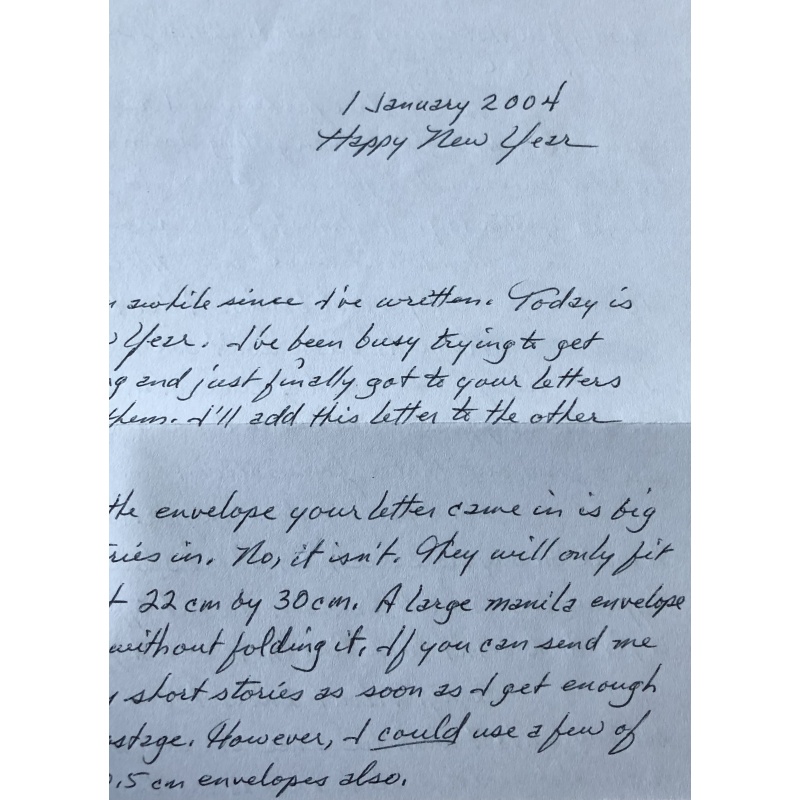 1 January 2004
Happy New Year
awhile since I've written. Today is
Year. I've been busy trying to get
and just finally got to your letters
them. I'll add this letter to the other
the envelope your letter came in is big
in. No, it isn't. They will only fit
22 cm by 30 cm. A large manila envelope
without folding it. If you can send me
short stories as soon as I get enough
However, I could use a few of
.5 cm envelopes also.